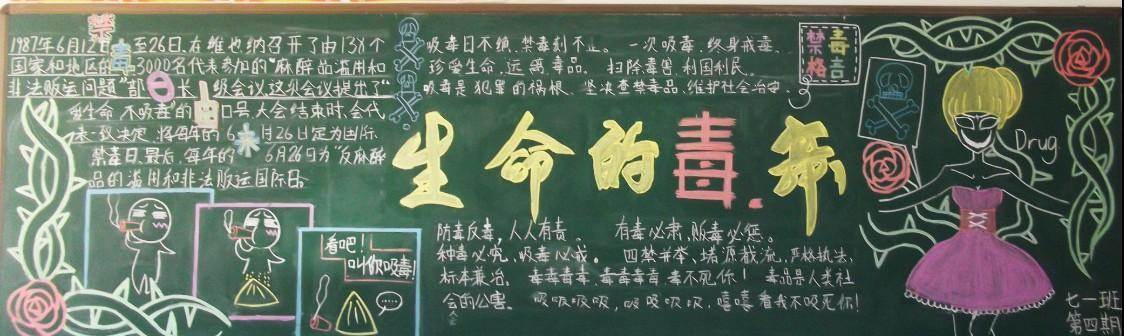 禁毒日
1987年6月12日至26日,在维也纳召开了由138个
国家和地区的3000名代表参加的“麻醉品滥用和
非法贩运问题”部长级会议.这次会议提出了“
爱生命 不吸毒”的口号,大会结束时,会代
表一致决定,将每年的6月26日定为国际
禁毒日,最后,每年的6月26日为“反麻醉
品的滥用和非法贩运国际日。
吸毒日不绝,禁毒刻不止。一次吸毒,终身戒毒.
珍爱生命,远离毒品。扫除毒害,利国利民。
吸毒是犯罪的祸根,坚决查禁毒品,维护社会治安.
禁毒
格言
生命的毒
防毒反毒,人人有责。有毒必肃,贩毒必惩。
种毒必究,吸毒必戒。四禁并举、堵源截流,严格执法,
标本兼治。毒毒毒毒,毒毒毒毒,毒不死你!毒品是人类社
会的公害。吸吸吸吸,吸吸吸吸,嘻嘻看我不吸死你!
看吧!
叫你吸毒!
Drug
七一班
第四期